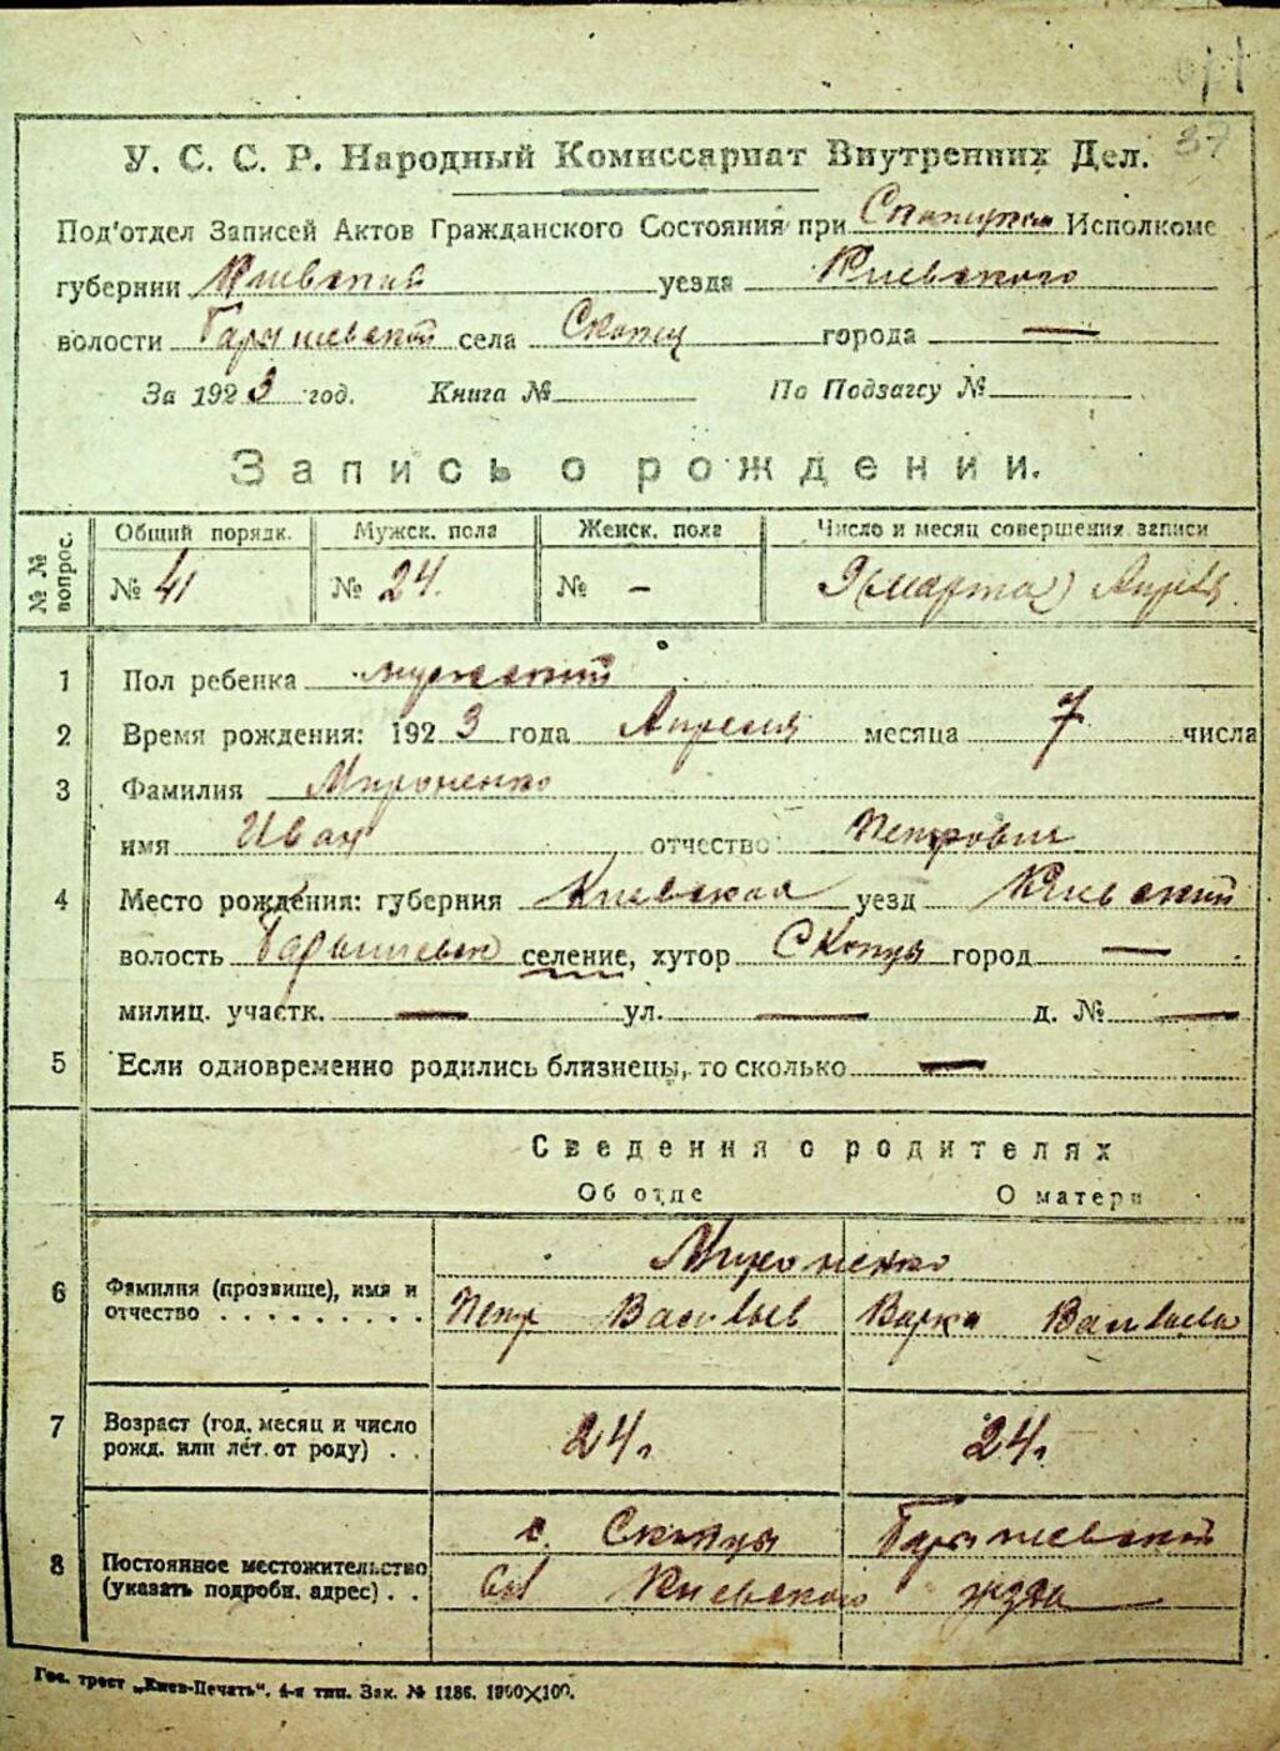 37
У. С. С. Р. Народный Комиссариат Внутренних Дел.
Под'отдел Записей Актов Гражданского Состояния при Исполкоме
губернии Киевской уезда Киевского
волости Барышевской села Скопцы города —
За 1923 год. Книга № По Подзагсу №
Запись о рождении.
№№ вопрос. Общий порядк. Мужск. пола Женск. пола Число и месяц совершения записи
№ 41 № 24. № - 9 (марта) Апреля.
1 Пол ребенка мужеский
2 Время рождения: 1923 года Апреля месяца 7 числа
3 Фамилия Мироненко
имя Иван отчество Петрович
4 Место рождения: губерния Киевская уезд Киевский
волость селение, хутор Скопцы город —
милиц. участк. — ул. — д. № —
5 Если одновременно родились близнецы, то сколько —
Сведения о родителях
Об отце О матери
Мироненко
6 Фамилия (прозвище), имя и
отчество . . . . . . . . . Петр Васильев Варка Васильева
7 Возраст (год, месяц и число
рожд. или лет. от роду) . . 24 л. 24 л.
с. Скопцы Барышевской
8 Постоянное местожительство
(указать подробн. адрес) . . Киевского уезда
Гос. трест „Киев-Печать". 4-я тип. Зак. № 1286. 1000×100.